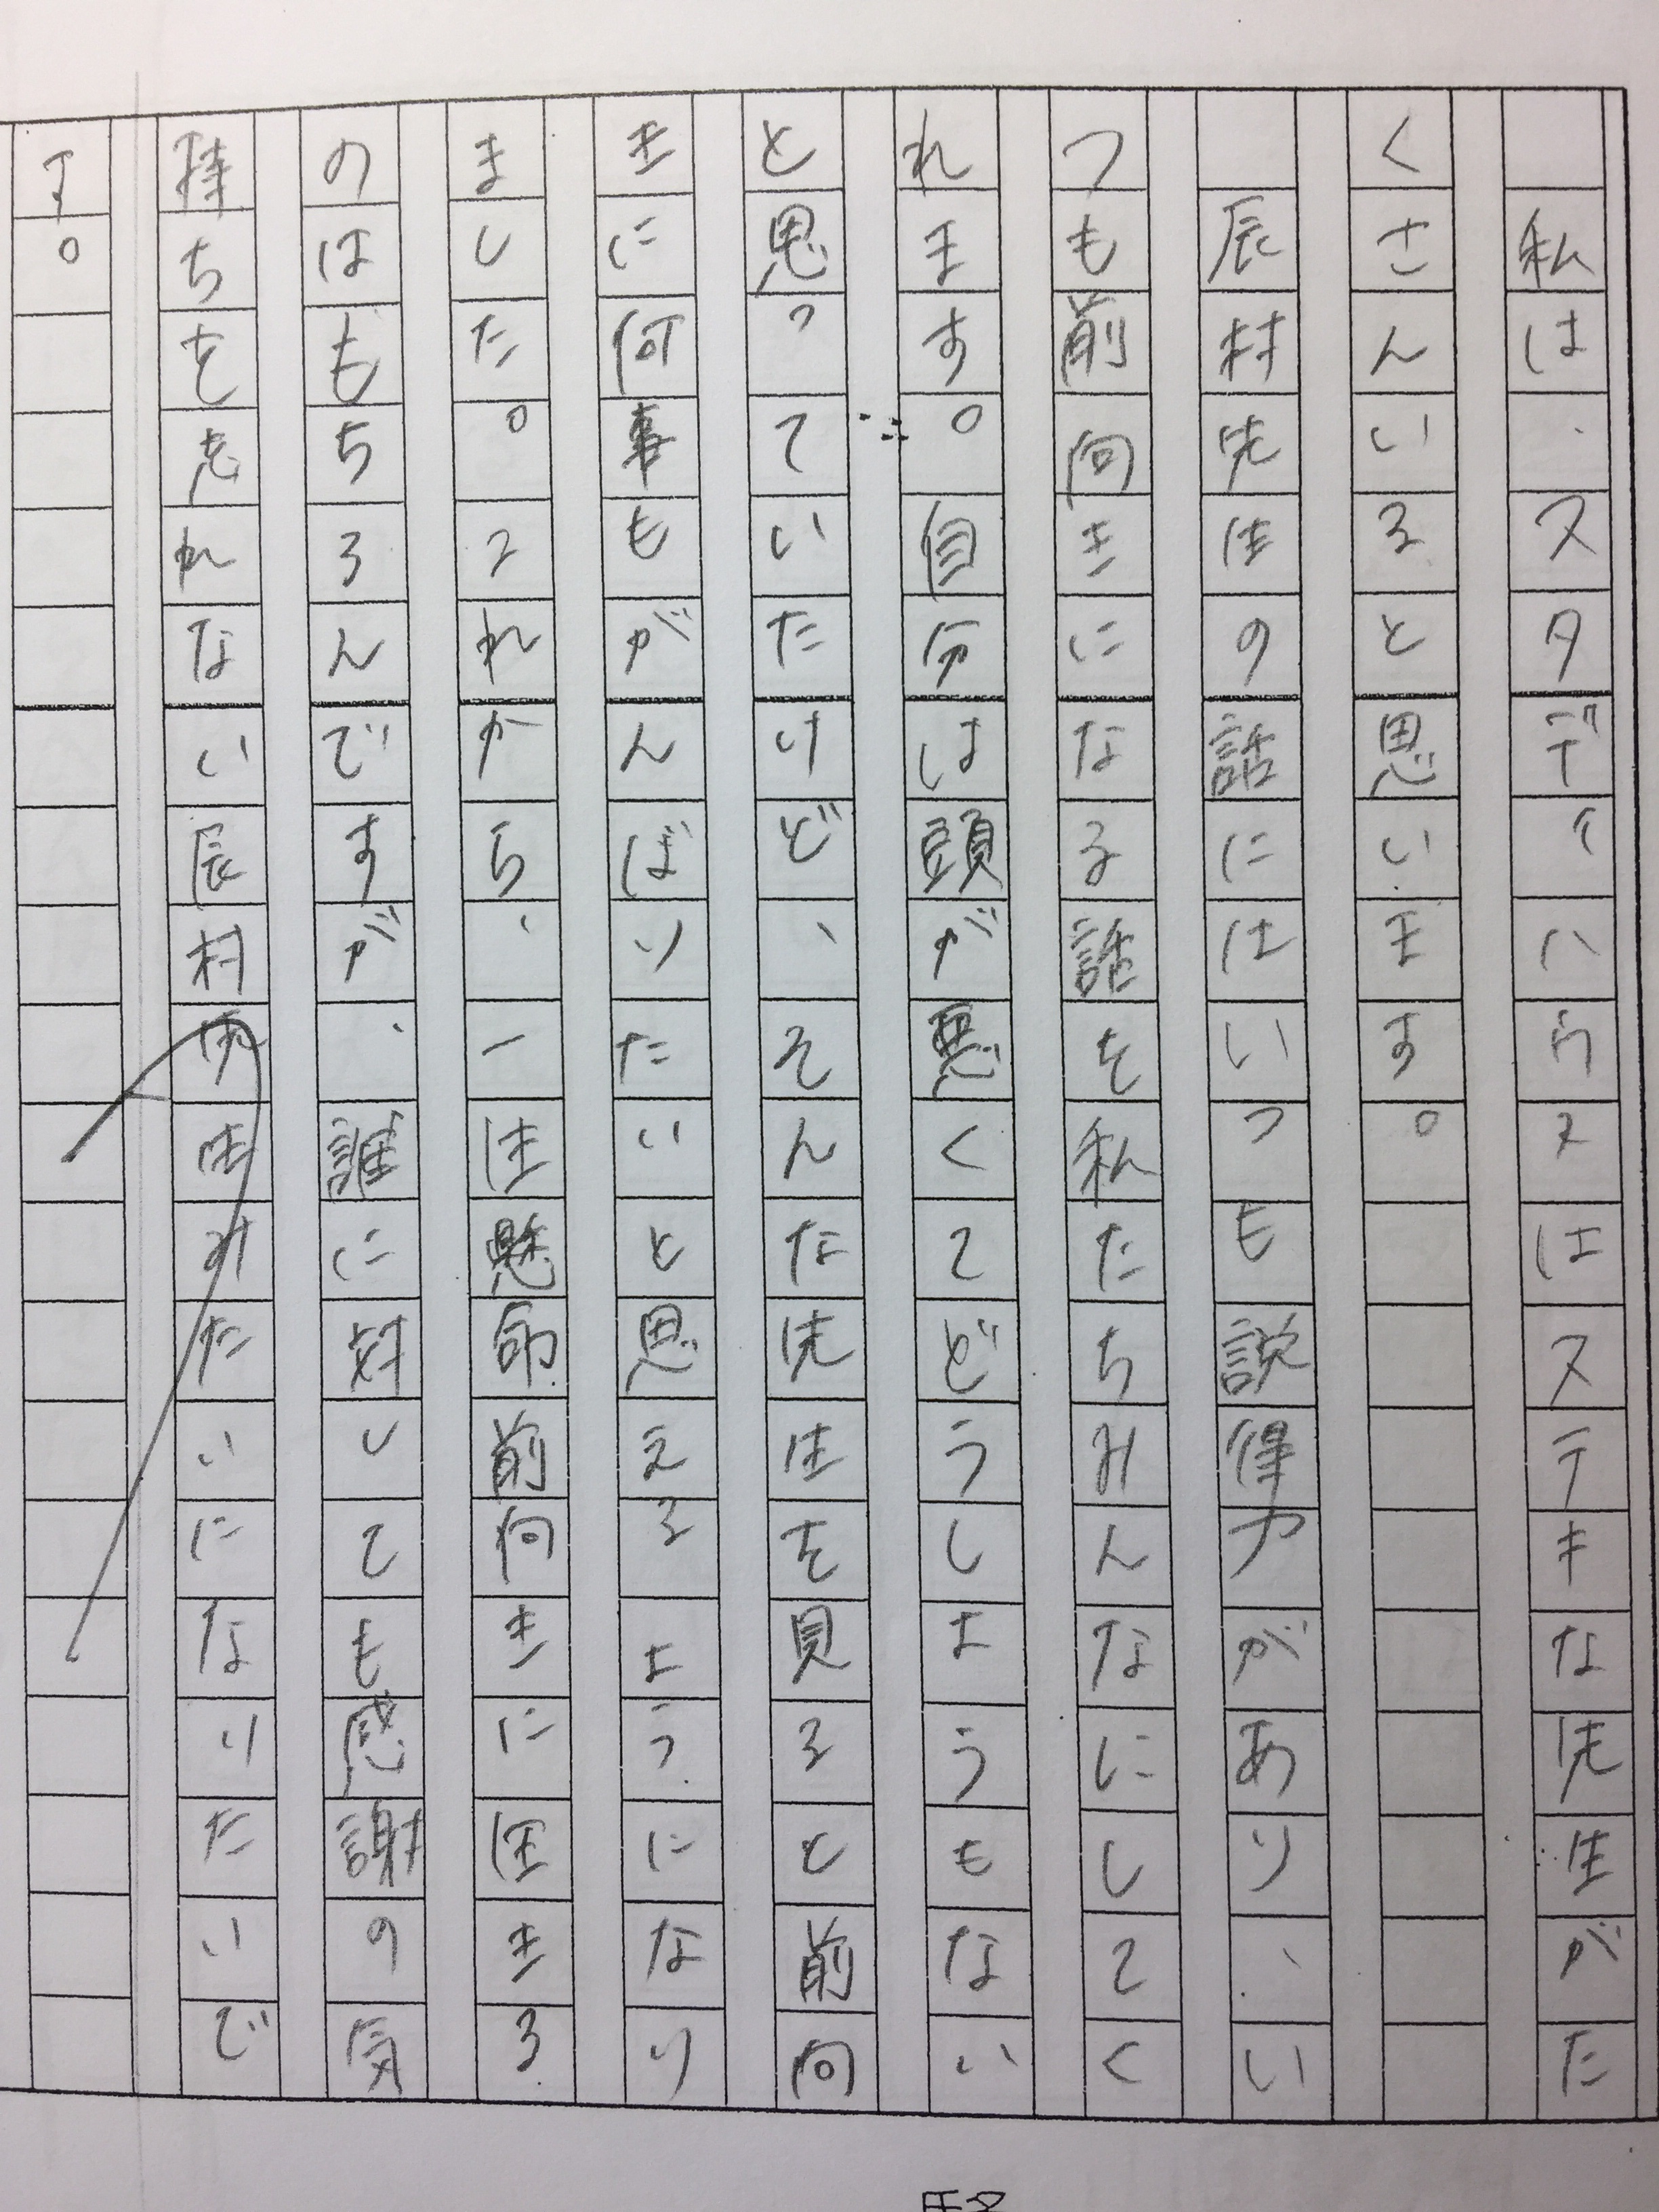 私は、スタディハウスはステキな先生がた
くさんいると思います。
辰村先生の話にはいつも説得力があり、い
つも前向きになる話を私たちみんなにしてく
れます。自分は頭が悪くてどうしようもない
と思っていたけど、そんな先生を見ると前向
きに何事もがんばりたいと思えるようになり
ました。これから、一生懸命前向きに生きる
のはもちろんですが、誰に対しても感謝の気
持ちを忘れない辰村先生みたいになりたいで
す。